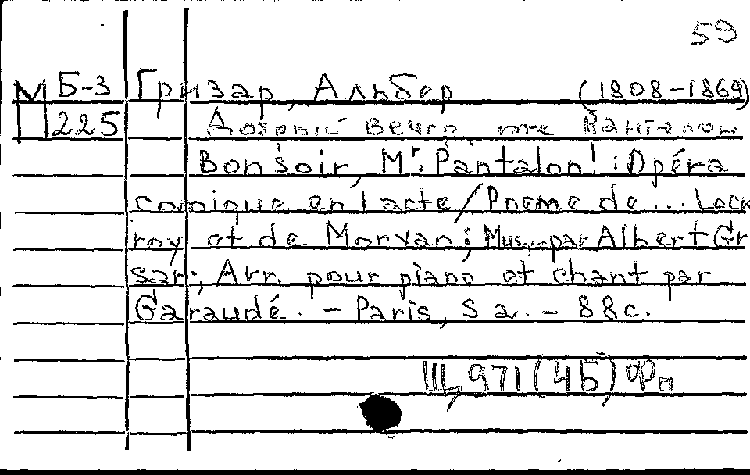 59
М Б-3 Гризар, Альбер (1808-1869)
П 225 вечер,
Bonsoir, Mr. Pantalon! : Opéra
comique en 1 acte / Poeme de ... Lock
roy et de Morvan; Mus. par Albert Gr
sar; Arr. pour piano et chant par
Garaudé. - Paris, S a. - 88c.
Щ 971 (4Б) Фп